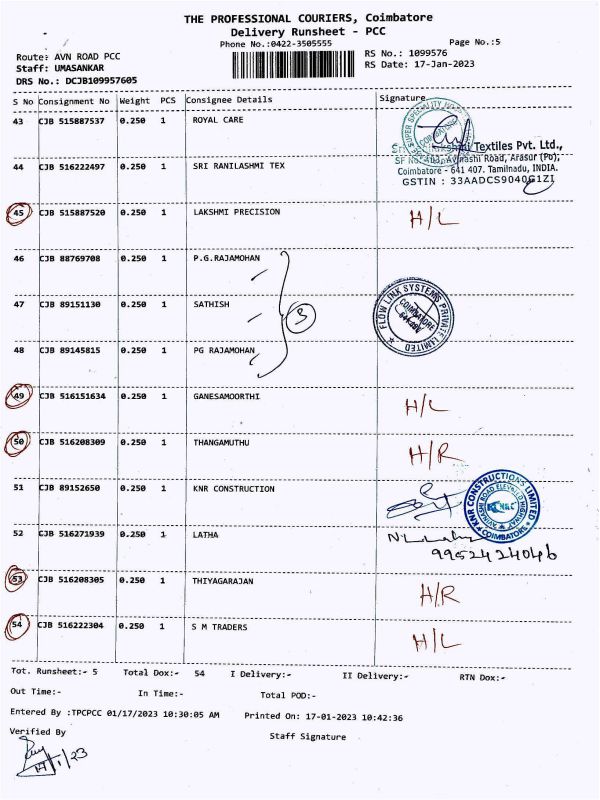 THE PROFESSIONAL COURIERS, Coimbatore
Delivery Runsheet - PCC
Phone No.:0422-3505555
Page No.:5
Route: AVN ROAD PCC
Staff: UMASANKAR
DRS No.: DCJB109957605
RS No.: 1099576
RS Date: 17-Jan-2023
S No Consignment No Weight PCS Consignee Details Signature
43 CJB 515887537 0.250 1 ROYAL CARE
Textiles Pvt. Ltd.,
Avinashi Road, Arasur (Po),
Coimbatore - 641 407. Tamilnadu, INDIA.
GSTIN : 33AADCS9040G1ZI
44 CJB 516222497 0.250 1 SRI RANILASHMI TEX
45 CJB 515887520 0.250 1 LAKSHMI PRECISION H/L
46 CJB 88769708 0.250 1 P.G.RAJAMOHAN
47 CJB 89151130 0.250 1 SATHISH 3
FLOW LINK SYSTEMS PRIVATE LIMITED
COIMBATORE
48 CJB 89145815 0.250 1 PG RAJAMOHAN
49 CJB 516151634 0.250 1 GANESAMOORTHI H/L
50 CJB 516208309 0.250 1 THANGAMUTHU H/R
51 CJB 89152650 0.250 1 KNR CONSTRUCTION
KNR CONSTRUCTIONS LIMITED
AVINASHI ROAD ELEVATED HIGHWAY
COIMBATORE
52 CJB 516271939 0.250 1 LATHA
9952424046
53 CJB 516208305 0.250 1 THIYAGARAJAN H/R
54 CJB 516222304 0.250 1 S M TRADERS H/L
Tot. Runsheet:- 5 Total Dox:- 54 I Delivery:- II Delivery:- RTN Dox:-
Out Time:- In Time:- Total POD:-
Entered By :TPCPCC 01/17/2023 10:30:05 AM Printed On: 17-01-2023 10:42:36
Verified By
Staff Signature